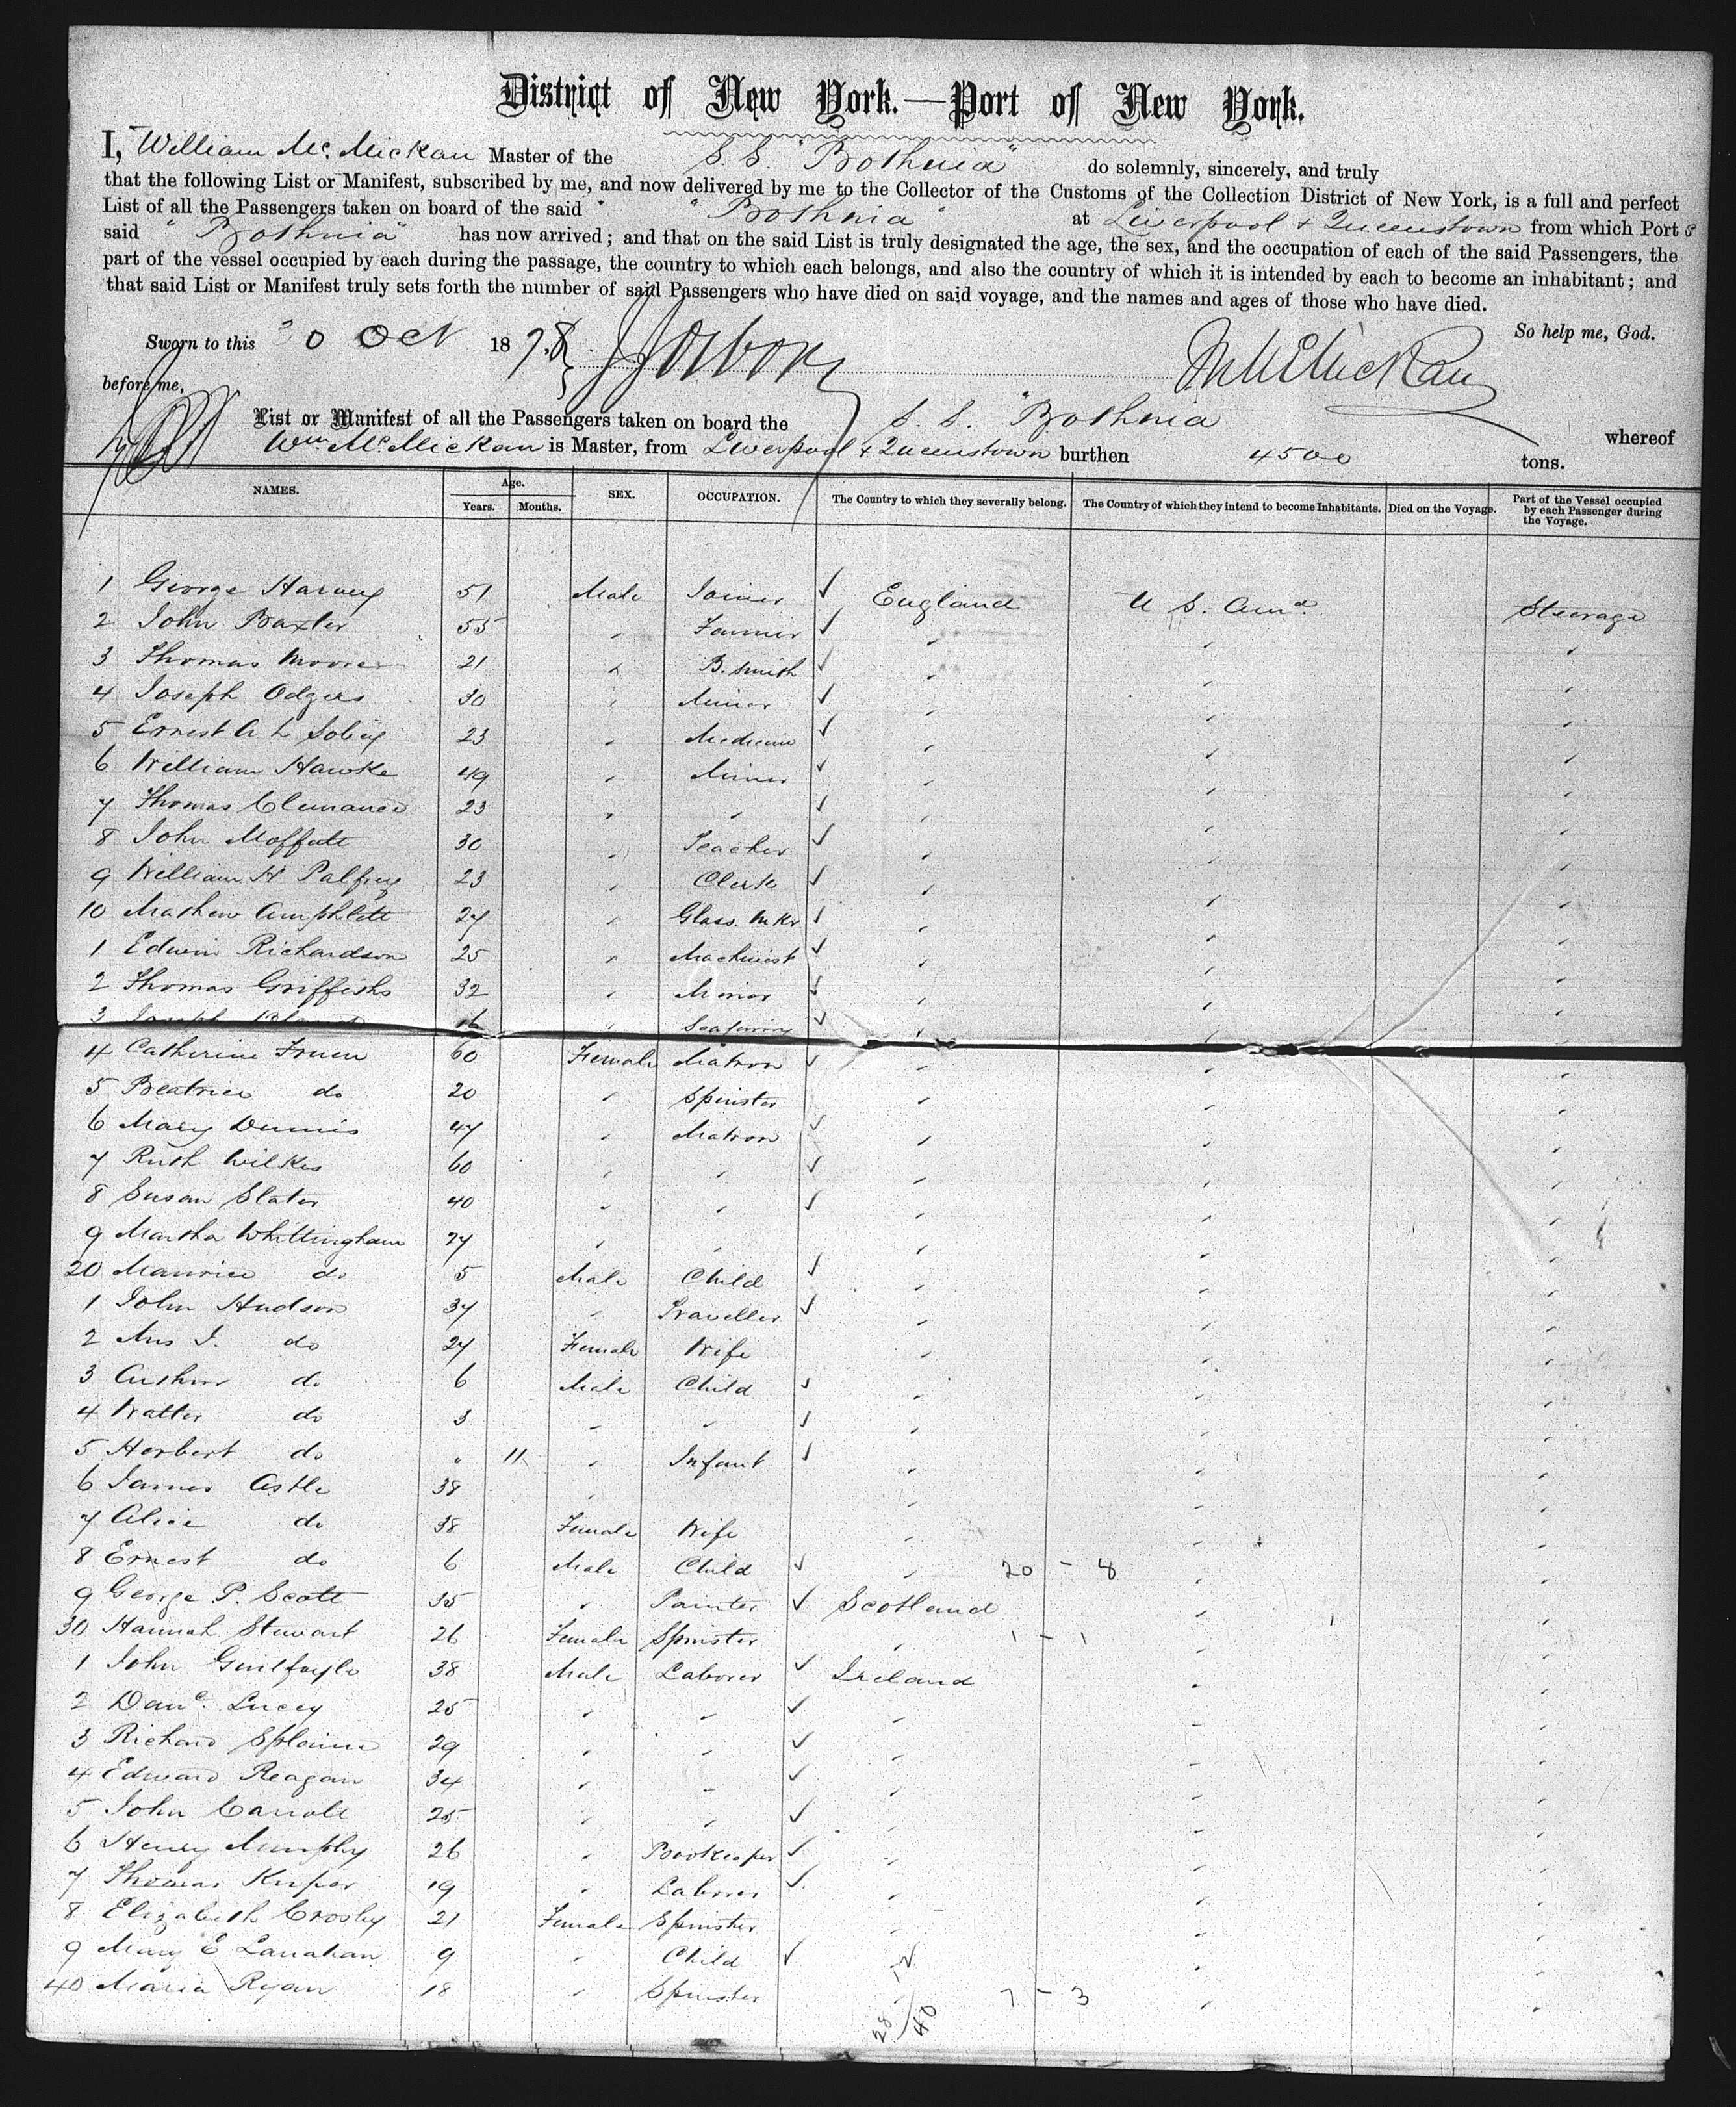 District of New York.—Port of New York.
I, William Mc. Mickan Master of the S. S. "Bothnia" do solemnly, sincerely, and truly
that the following List or Manifest, subscribed by me, and now delivered by me to the Collector of the Customs of the Collection District of New York, is a full and perfect
List of all the Passengers taken on board of the said "Bothnia" at Liverpool & Queenstown from which Port s
said "Bothnia" has now arrived; and that on the said List is truly designated the age, the sex, and the occupation of each of the said Passengers, the
part of the vessel occupied by each during the passage, the country to which each belongs, and also the country of which it is intended by each to become an inhabitant; and
that said List or Manifest truly sets forth the number of said Passengers who have died on said voyage, and the names and ages of those who have died.
So help me, God.
Sworn to this 30 Oct 1878
before me,
List or Manifest of all the Passengers taken on board the S. S. "Bothnia whereof
Wm. McMickan is Master, from Liverpool & Queenstown burthen 4500 tons.
NAMES. Age. Years. Months. SEX. OCCUPATION. The Country to which they severally belong. The Country of which they intend to become Inhabitants. Died on the Voyage. Part of the Vessel occupied by each Passenger during the Voyage.
1 George Harvey 51 Male Joiner ✓ England U S. Ama Steerage
2 John Baxter 55 " Farmer ✓ " " "
3 Thomas Moore 21 " B. Smith ✓ " " "
4 Joseph Odgers 30 " Miner ✓ " " "
5 Ernest A L 23 " ✓ " " "
6 William Hawke 49 " Miner ✓ " " "
7 Thomas 23 " " ✓ " " "
8 John Moffatt 30 " Teacher ✓ " " "
9 William H Palfrey 23 " Clerk ✓ " " "
10 Mathew Amphlett 27 " Glass. Mkr ✓ " " "
1 Edwin Richardson 25 " Machinist ✓ " " "
2 Thomas Griffiths 32 " Miner ✓ " " "
3 Joseph " ✓ " " "
4 Catherine Fruen 60 Female Matron ✓ " " "
5 Beatrice do 20 " Spinster " " "
6 Mary Dennis 47 " Matron ✓ " " "
7 Ruth Wilkes 60 " " ✓ " " "
8 Susan Slater 40 " " ✓ " " "
9 Martha Whittingham 27 " " " " "
20 Maurice do 5 Male Child ✓ " " "
1 John Hudson 37 " Traveller ✓ " " "
2 do 27 Female Wife " " "
3 Arthur do 6 Male Child ✓ " " "
4 Walter do 3 " " ✓ " " "
5 Herbert do " 11 " Infant ✓ " " "
6 James Astle 38 " " " "
7 Alice do 38 Female Wife " " "
8 Ernest do 6 Male Child ✓ " 20 - 8 " "
9 George P. Scott 35 " Painter ✓ Scotland " "
30 Hannah Stewart 26 Female Spinster " 1 - 1 " "
1 John Guilfoyle 38 Male Laborer ✓ Ireland " "
2 Lucey 25 " " ✓ " " "
3 Richard Splaine 29 " " ✓ " " "
4 Edward Reagan 34 " " ✓ " " "
5 John Carroll 25 " " ✓ " " "
6 Henry Murphy 26 " Bookeeper ✓ " " "
7 Thomas 19 " Laborer ✓ " " "
8 Elizabeth Crosby 21 Female Spinster " " "
9 Mary E Lanahan 9 " Child ✓ " " "
40 Maria Ryan 18 " Spinster " 7 - 3 " "
12
28/40